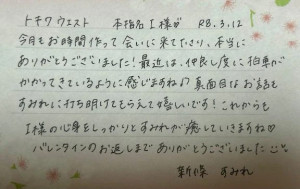 トキワウエスト 本指名I様♡ R8.3.12
今月もお時間作って会いに来てくださり、本当に
ありがとうございました!最近は、仲良し度に拍車が
かかってきているように感じますね♪真面目なお話も
すみれに打ち明けてもらえて嬉しいです!これからも
I様の心身をしっかりとすみれが癒していきますね♡
バレンタインのお返しまでありがとうございました
新條 すみれ